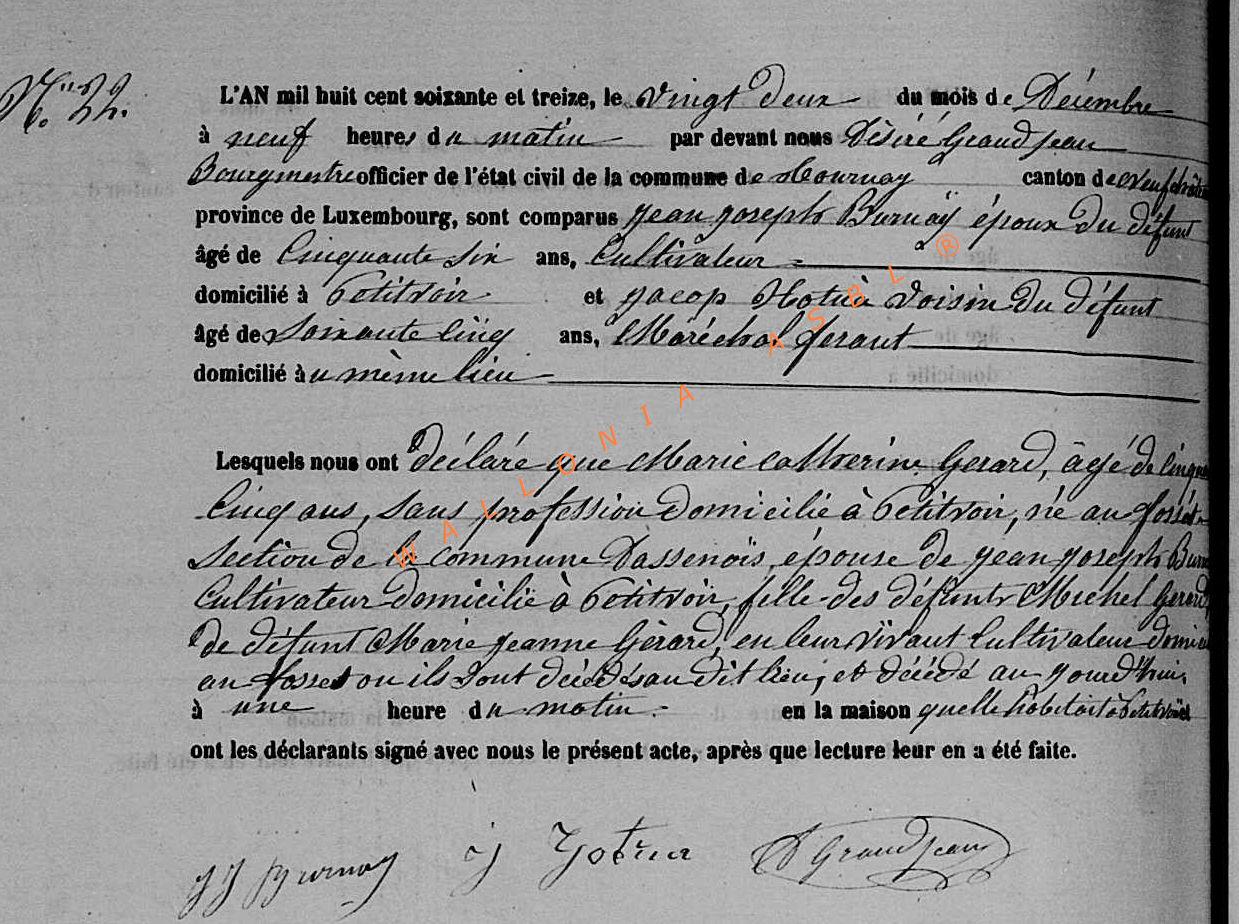 No. 22.
L'AN mil huit cent soixante et treize, le vingt deux du mois de Décembre
à neuf heures du matin par devant nous Désiré Grandjean
Bourgmestre officier de l'état civil de la commune de Tournay canton de Neufchâteau
province de Luxembourg, sont comparus jean joseph Burnäÿ époux du défunt
âgé de Cinquante six ans, Cultivateur
domicilié à Petitvoir et jacop voisin du défunt
âgé de soixante cinq ans, Maréchal feraut
domicilié àu même lieu
Lesquels nous ont déclaré que Marie catherine Gerard, âgé de cinqu
Cinq ans, sans profession domicilié à Petitvoir, né au fossé
section de la commune Dassenois, épouse de jean joseph Burn
Cultivateur domicilié à Petitvoir, fille des défunts Michel Gerard
de défunt Marie jeanne Gérard, en leur vivant Cultivateur domici
au fosset ou ils sont décédés au dit lieu, et décédé au jourd'hui,
à une heure du matin. en la maison quelle habitait à Petitvoir
ont les déclarants signé avec nous le présent acte, après que lecture leur en a été faite.
JJ Burnay J D Grandjean
WALLONIA ASBL ®